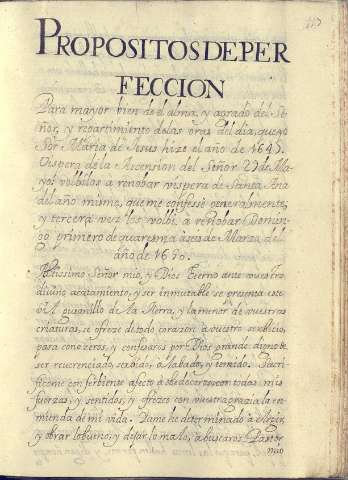 PROPOSITOS DE PER
FECCION
Para mayor bien de el alma, y agrado del Se
ñor, y repartimiento de las oras del dia, que yo
Sor Maria de Jesus hize el año de 1645.
Vispera de la Ascension del Señor 29 de Ma
yo: volbilos a renobar vispera de Santa Ana
del año mismo, que me confessè generalmente;
y tercera vez los volbi a renobar Domin
go primero de quaresma a seis de Marzo del
año de 1650.
Altissimo Señor mio, y Dios Eterno ante vuestro
divino acatamiento, y ser inmutable se presenta este
vil gusanillo de la tierra, y la menor de vuestras
criaturas; se ofreze de todo corazon à vuestro servicio,
para conozeros, y confesaros por Dios grande digno de
ser reverenciado, servido, alabado, y temido. Sacri
ficome con ferbiente afecto à obedeceros con todas mis
fuerzas, y sentidos, y ofrezco con vuestra grazia la en
mienda de mi vida. Dame he determinado à elegir,
y obrar lo bueno, y dejar lo malo, à buscaros Pastor
mio